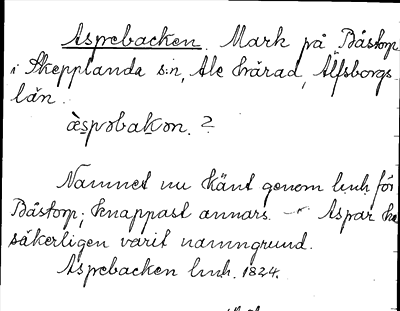 Aspebacken. Mark på Båstorp
i Skepplanda s:n, Ale härad, Älfsborgs
län.
æspəbakən. ?
Namnet nu känt genom lmh. för
Båstorp; knappast annars. — Aspar ha
säkerligen varit namngrund.
Aspebacken lmh. 1824.